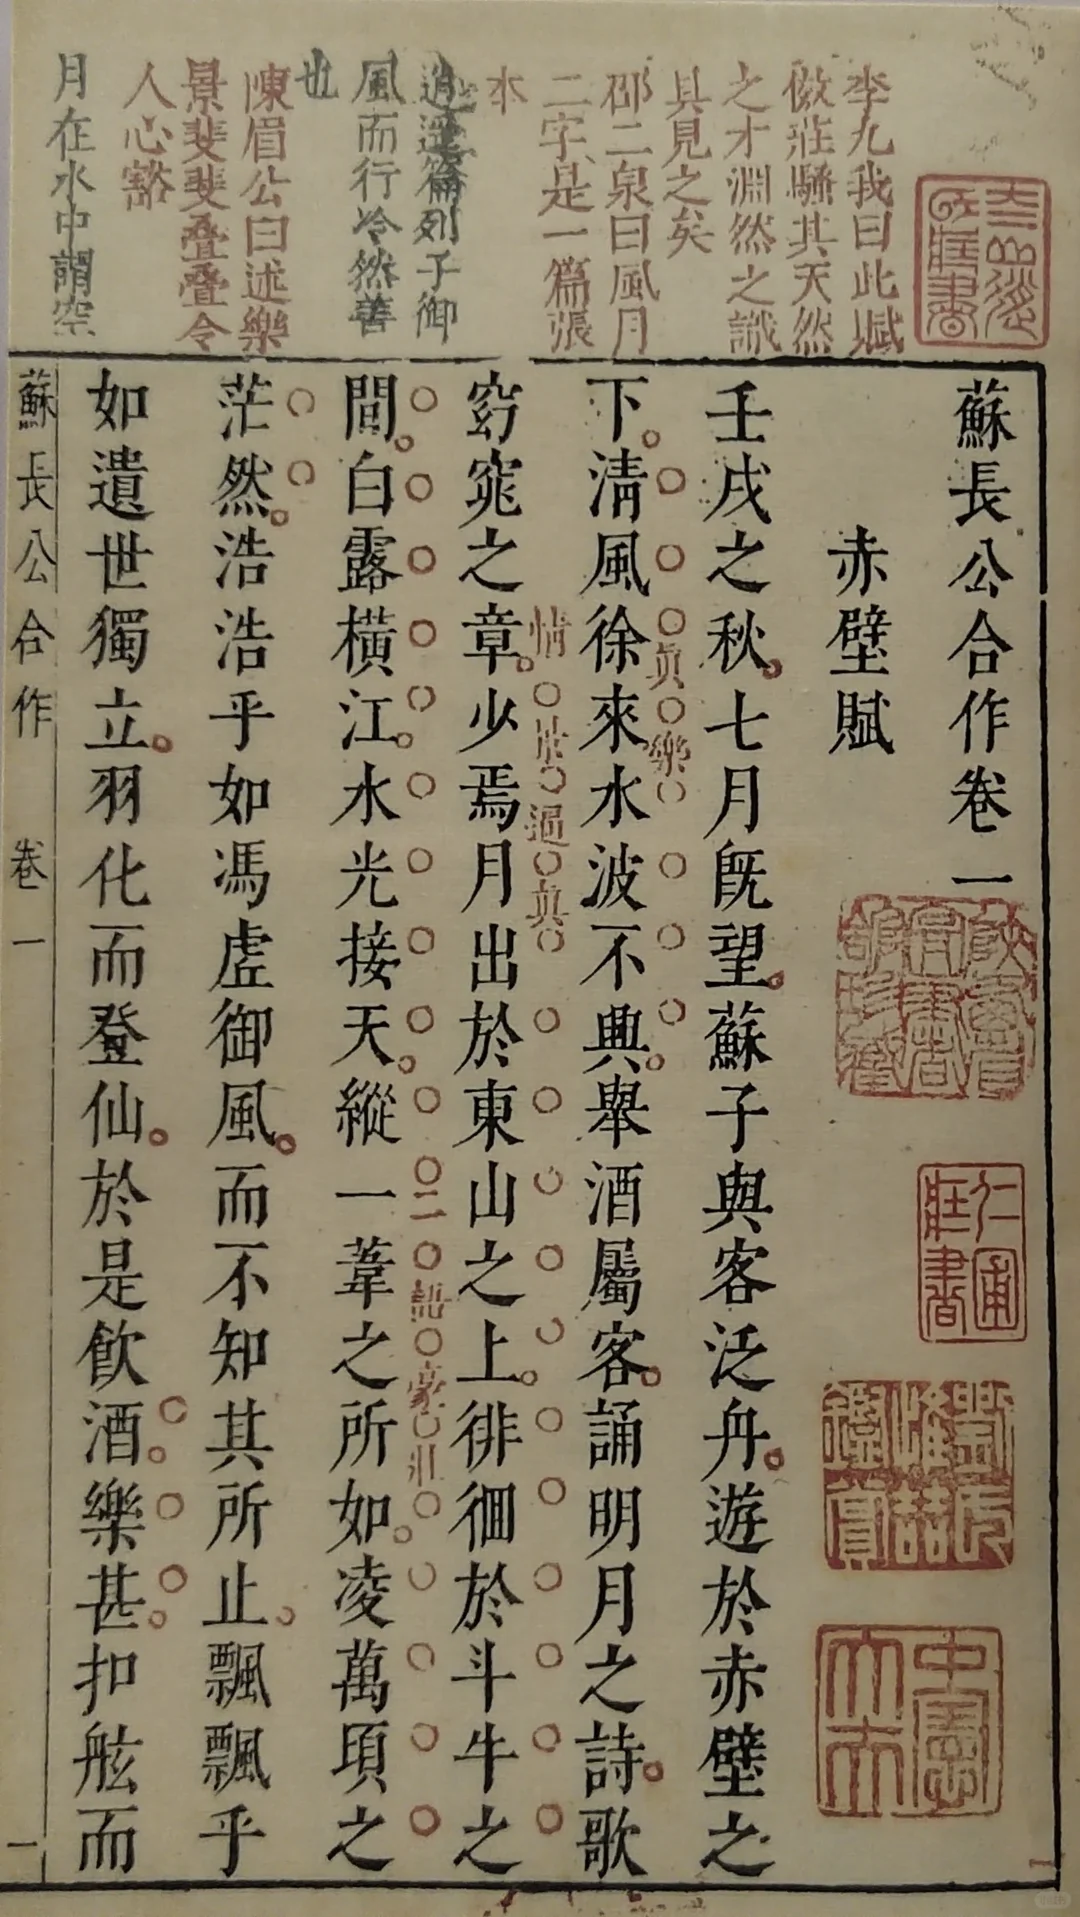 蘇長公合作卷一
赤壁賦
壬戌之秋七月既望蘇子與客泛舟遊於赤壁之
下清風徐來水波不興舉酒屬客誦明月之詩歌
窈窕之章少焉月出於東山之上徘徊於斗牛之
間白露橫江水光接天縱一葦之所如凌萬頃之
茫然浩浩乎如馮虛御風而不知其所止飄飄乎
如遺世獨立羽化而登仙於是飲酒樂甚扣舷而
蘇長公合作 卷一 一
李九我曰此賦
倣莊騷其天然
之才淵然之識
具見之矣
邵二泉曰風月
二字是一篇張
本
逍遙篇列子御
風而行冷然善
也
陳眉公曰述樂
景斐斐疊疊令
人心豁
月在水中謂空
真樂
情景逼真
二語豪壯